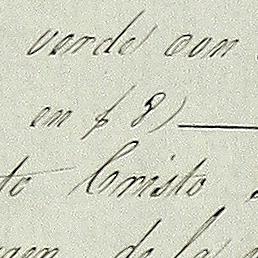 verde con
en $ 8)
to Cristo
de la